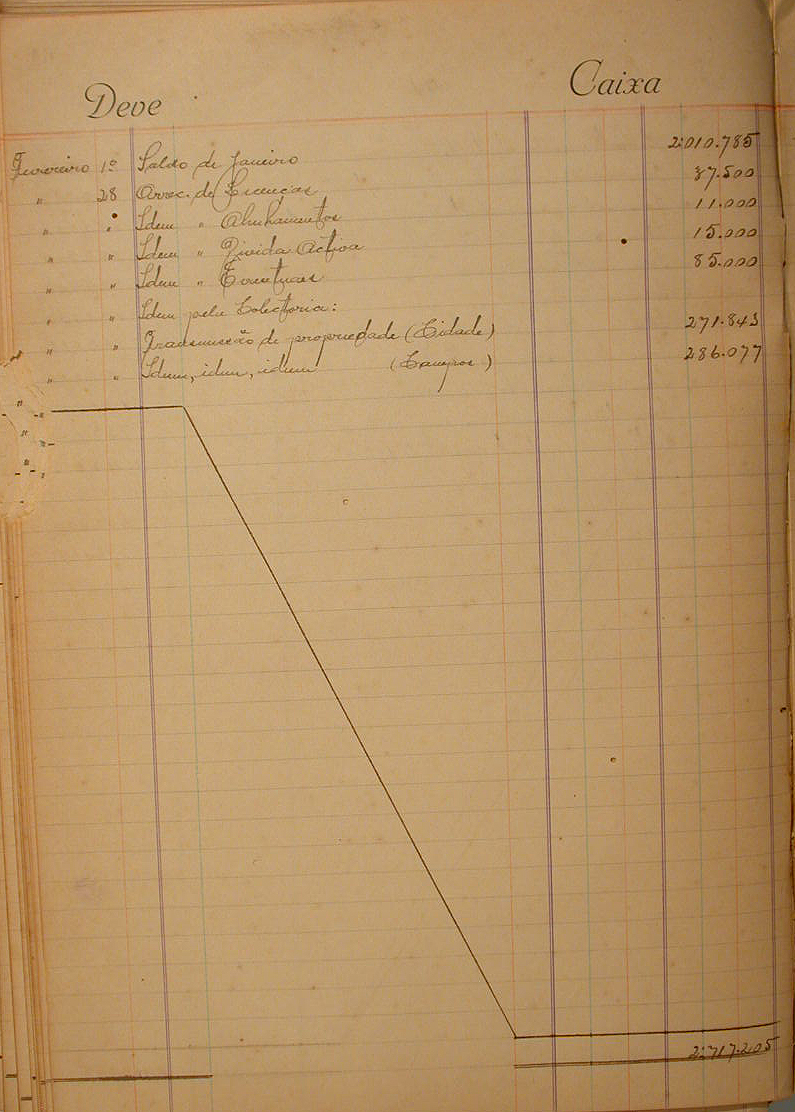 Deve Caixa
Fevereiro 1º Saldo de Janeiro 2:010.785
" 28 Arrec. de Licencas 37.500
" " Idem " Alinhamentos 11.000
" " Idem " Divida Activa 15.000
" " Idem " Eventuaes 85.000
" " Idem pela Colectoria:
" " Transmissão de propriedade (Cidade) 271.843
" " Idem, idem, idem (Campos) 286.077
2:717.205